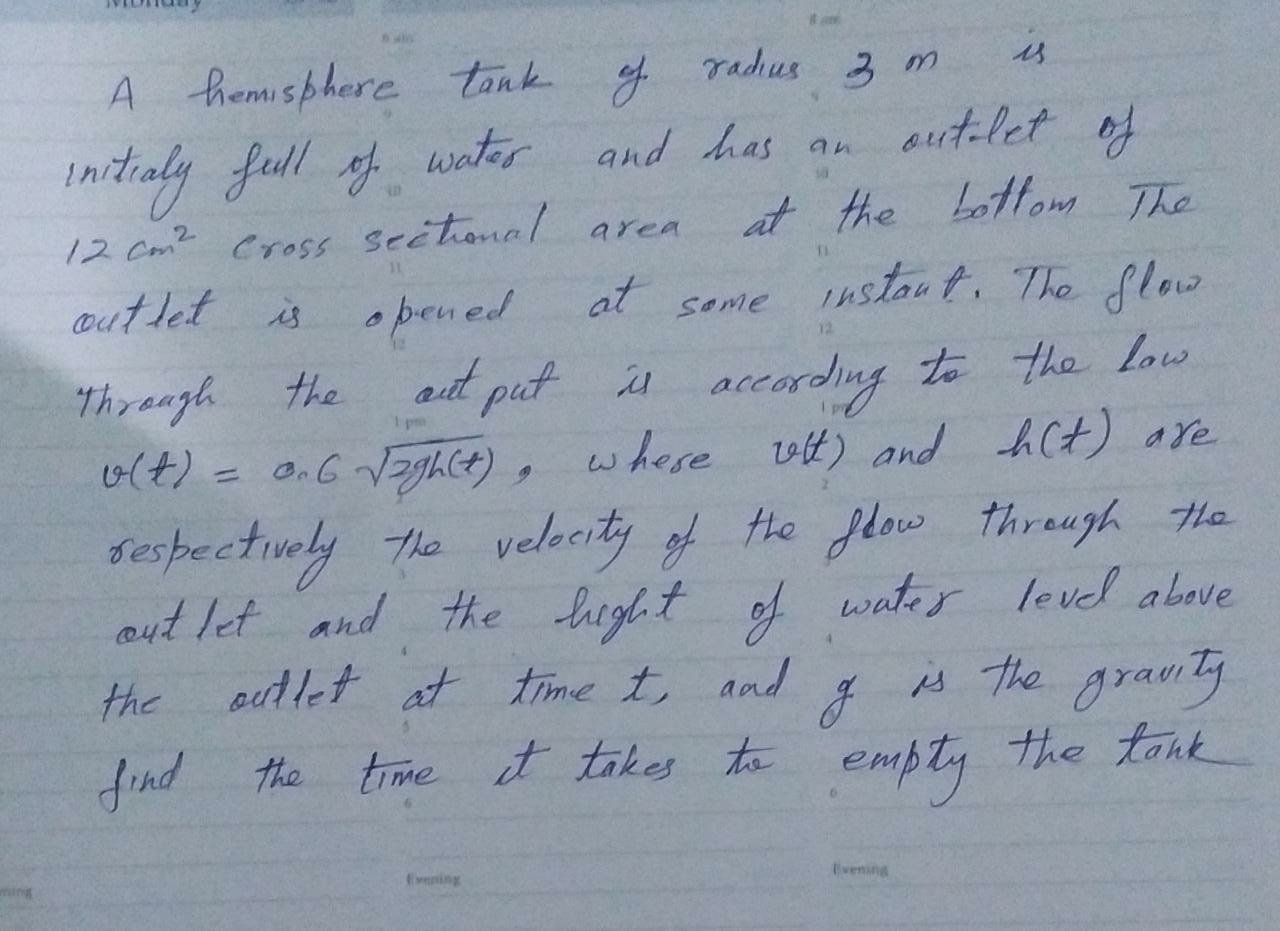 Monday
8 am
8 am
A hemisphere tank of radius 3 m is
9
9
initialy full of water and has an out-let of
10
10
12 cm² cross sectional area at the bottom The
11
11
outlet is opened at some instant. The flow
12
12
Through the out put is according to the low
1 pm
1 pm
v(t) = 0.6 √2gh(t) , where v(t) and h(t) are
2
respectively the velocity of the flow through the
3
out let and the hight of water level above
4
4
the outlet at time t, and g is the gravity
5
find the time it takes to empty the tank
6
6
Evening
Evening